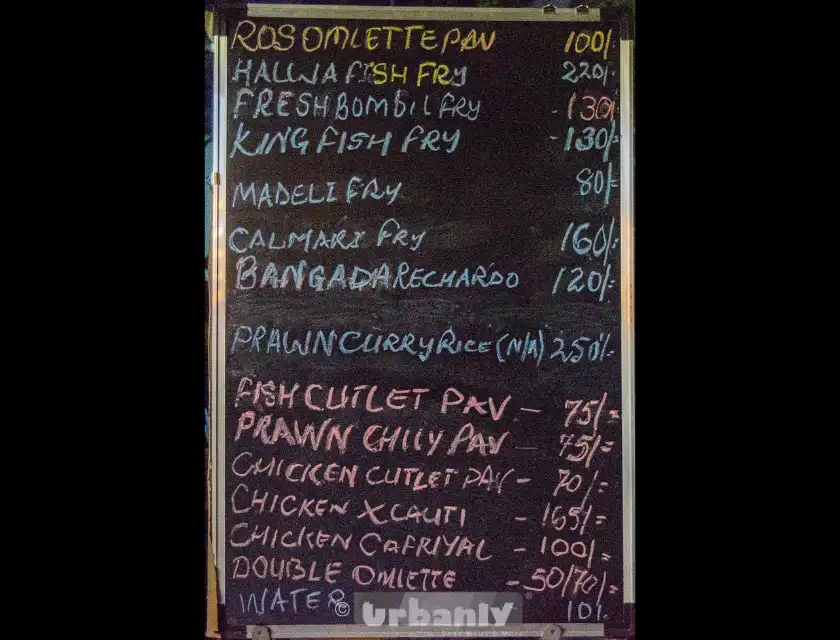 ROS OMLETTE PAV 100/-
HALWA FISH FRY 220/-
FRESH BOMBIL FRY - 130/
KING FISH FRY - 130/-
MADELI FRY 80/-
CALMARI FRY 160/-
BANGADA RECHARDO 120/-
PRAWN CURRY RICE (N/A) 250/-
FISH CUTLET PAV - 75/=
PRAWN CHILY PAV - 75/=
CHICKEN CUTLET PAV - 70/=
CHICKEN XCAUTI - 165/=
CHICKEN CAFRIYAL - 100/=
DOUBLE OMLETTE - 50/70/=
WATER 10/.
© Urbanly